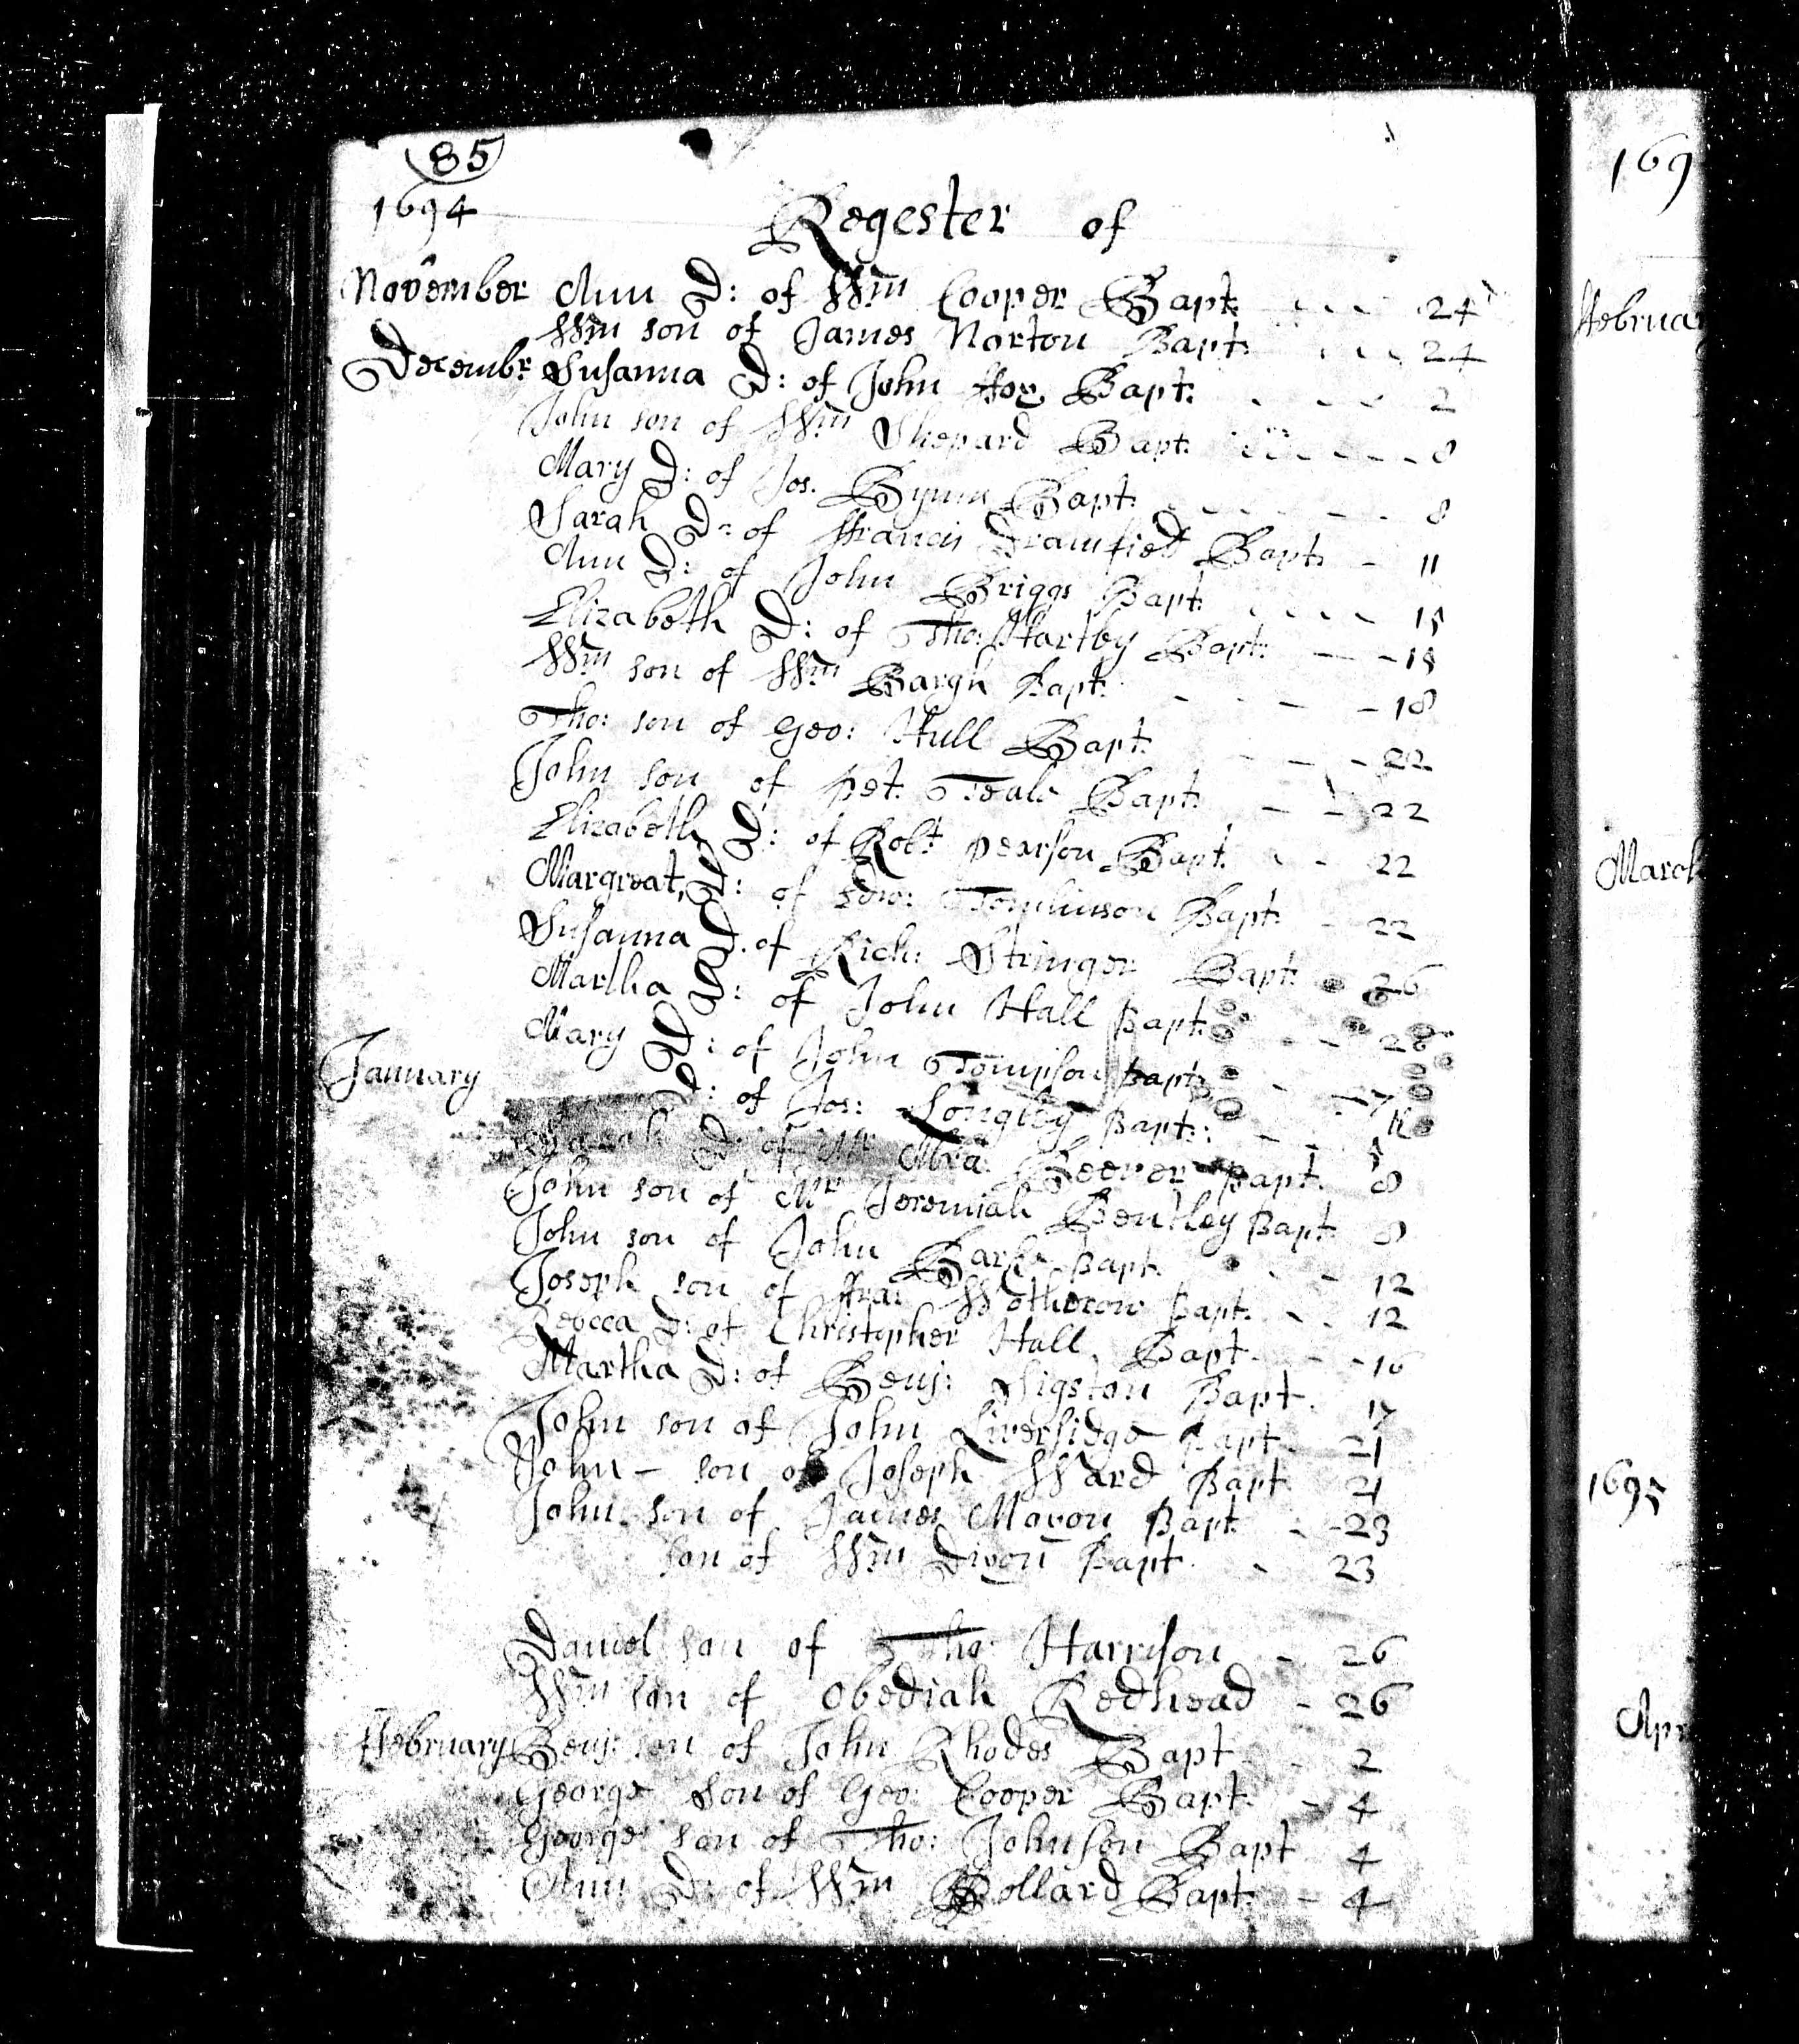 85
1694
Regester of
November Ann D: of Wm Cooper Bapt: - - - 24
Wm son of James Norton Bapt: - - - 24
Decembr Susanna D: of John ffox Bapt: - - - 2
John son of Wm Shepard Bapt: - - - - 8
Mary D: of Jos. Bynns Bapt: - - - - 8
Sarah D: of ffrancis Bapt: - 11
Ann D: of John Briggs Bapt: - - - - 15
Elizabeth D: of Tho: Hartley Bapt: - - 18
Wm son of Wm Bargh Bapt: - - - - 18
Tho: son of Geo: Hull Bapt: - - - 22
John son of pet. Teale Bapt: - - 22
Elizabeth D: of Robt pearson Bapt: - - 22
Margreat D: of Edw: Tomlinson Bapt: - 22
Susanna D: of Rich: Stringer Bapt: 26
Martha D: of John Hall Bapt: - - 26
Mary D: of John Tompson Bapt: - -
January D: of Jos: Longley Bapt: - -
D: of Mr Abra: Beever Bapt: 8
John son of Mr Jeremiah Bentley Bapt: 8
John son of John Bapt: - - 12
Joseph son of ffra: Wotherow Bapt: - - 12
Rebeca D: of Christopher Hall Bapt: - - 16
Martha D: of Benj: Sigston Bapt: 17
John son of John Liversidge Bapt: 21
John - son of Joseph Ward Bapt 21
John son of James Moxon Bapt: - - 23
son of Wm Dixon Bapt: - 23
Daniel son of Tho: Harrison - 26
Wm son of Obediah Redhead - 26
ffebruary Benj: son of John Rhodes Bapt - - 2
George son of Geo: Cooper Bapt: - 4
George son of Tho: Johnson Bapt 4
Ann D: of Wm Bollard Bapt: - 4
169
ffebruar
March
1695
Apr